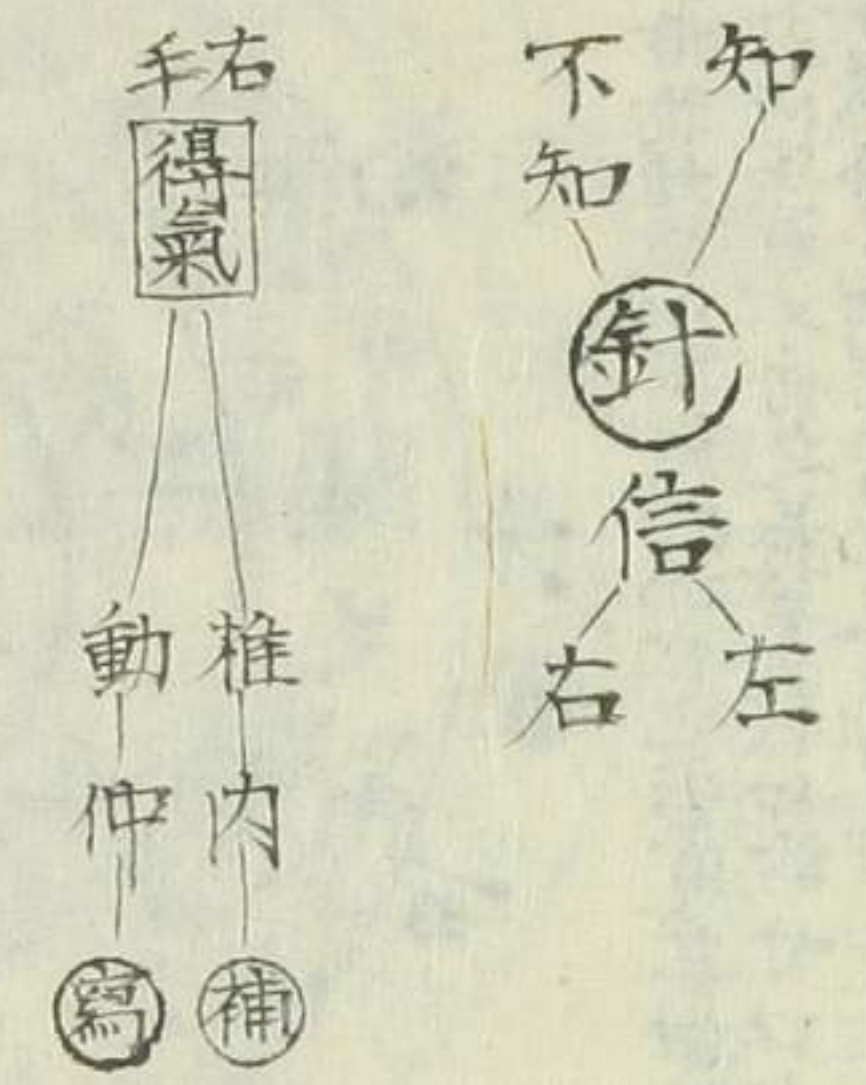 知
不知
針
信
左
右
右手
得氣
椎
内
補
動
仲
寫